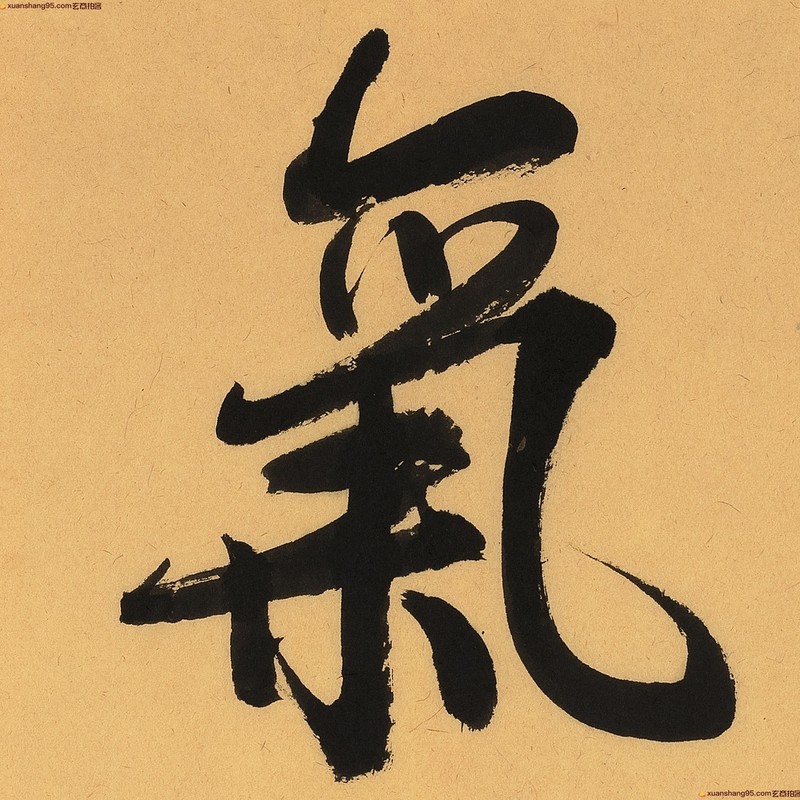 xuanshang95.com玄商拍客
氣
xuanshang95.com玄商拍客